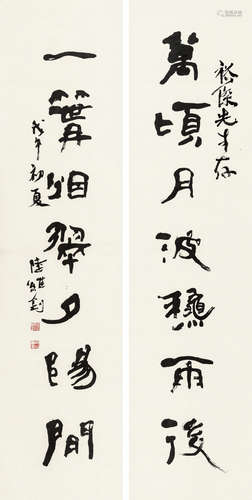 萬頃月波穐雨後
先生存
一篝烟翠夕陽間
戊午初夏
陸維釗